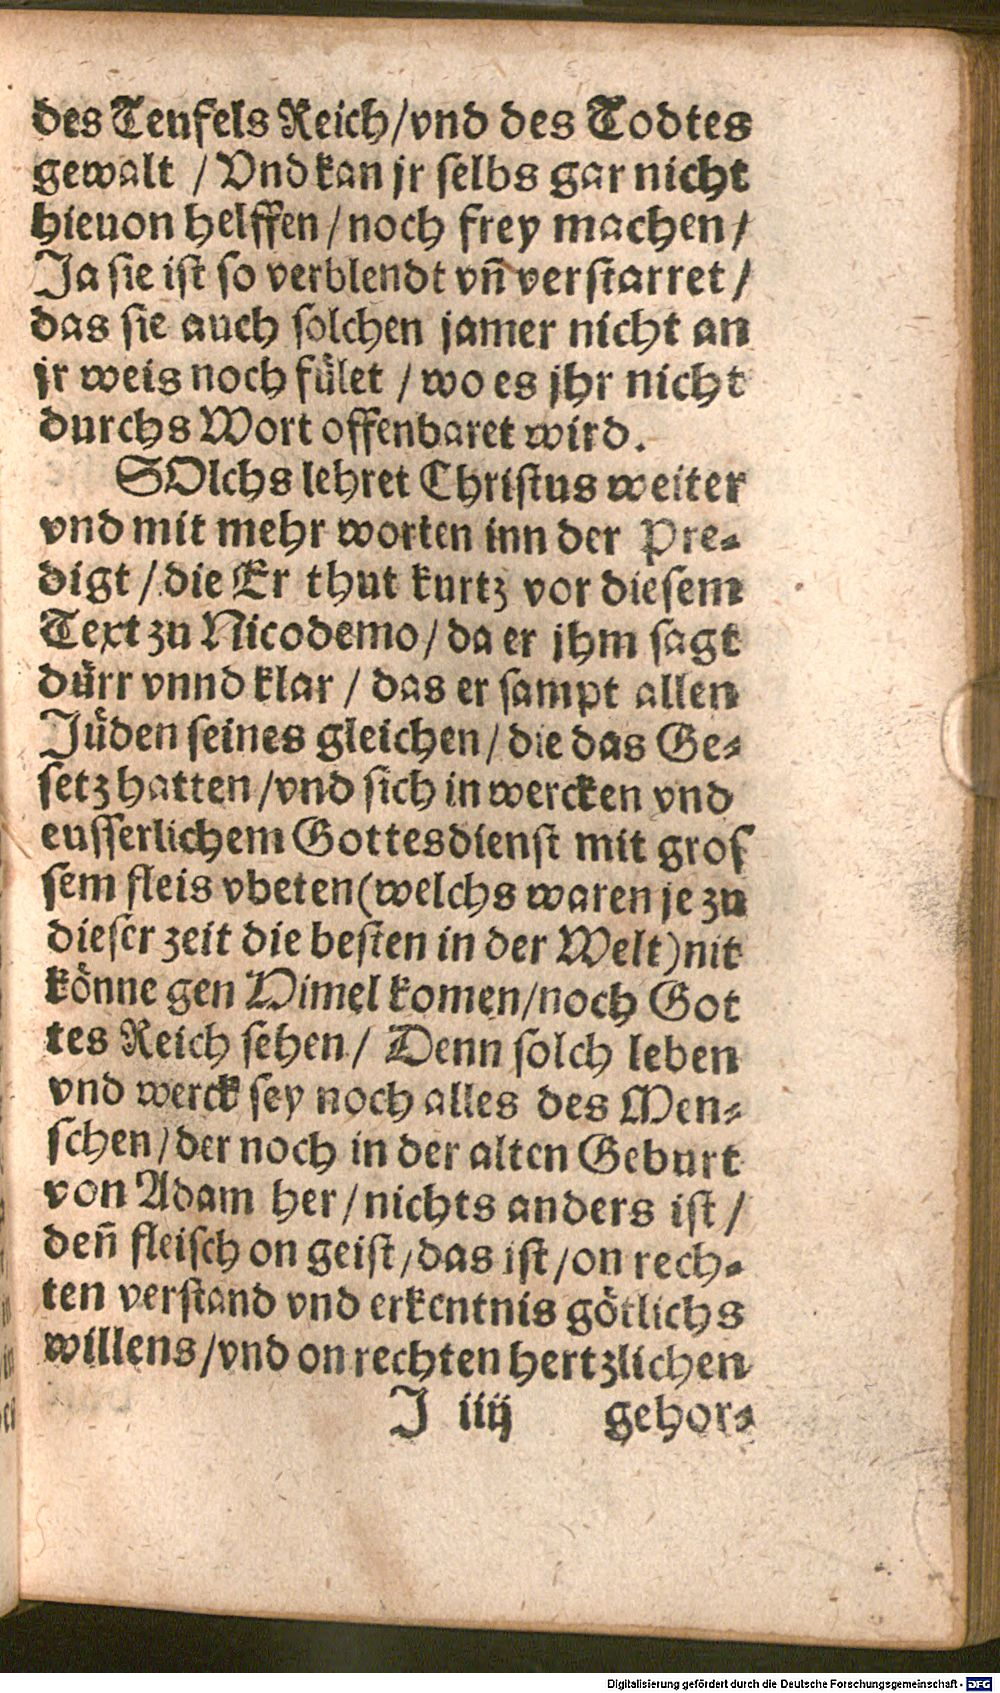 des Teufels Reich/vnd des Todtes
gewalt / Vnd kan jr selbs gar nicht
hieuon helffen/noch frey machen/
Ja sie ist so verblendt vñ verstarret/
das sie auch solchen jamer nicht an
jr weis noch fület / wo es jhr nicht
durchs Wort offenbaret wird.
SOlchs lehret Christus weiter
vnd mit mehr worten inn der Pre-
digt/die Er thut kurtz vor diesem
Text zu Nicodemo/da er jhm sagt
dürr vnnd klar / das er sampt allen
Jüden seines gleichen/die das Ge-
setz hatten/vnd sich in wercken vnd
eusserlichem Gottesdienst mit gros
sem fleis vbeten(welchs waren je zu
dieser zeit die besten in der Welt)nit
könne gen Himel komen/noch Got
tes Reich sehen/ Denn solch leben
vnd werck sey noch alles des Men-
schen/der noch in der alten Geburt
von Adam her/nichts anders ist/
deñ fleisch on geist/das ist/on rech-
ten verstand vnd erkentnis götlichs
willens/vnd on rechten hertzlichen
J iiij gehor-
Digitalisierung gefördert durch die Deutsche Forschungsgemeinschaft - DFG